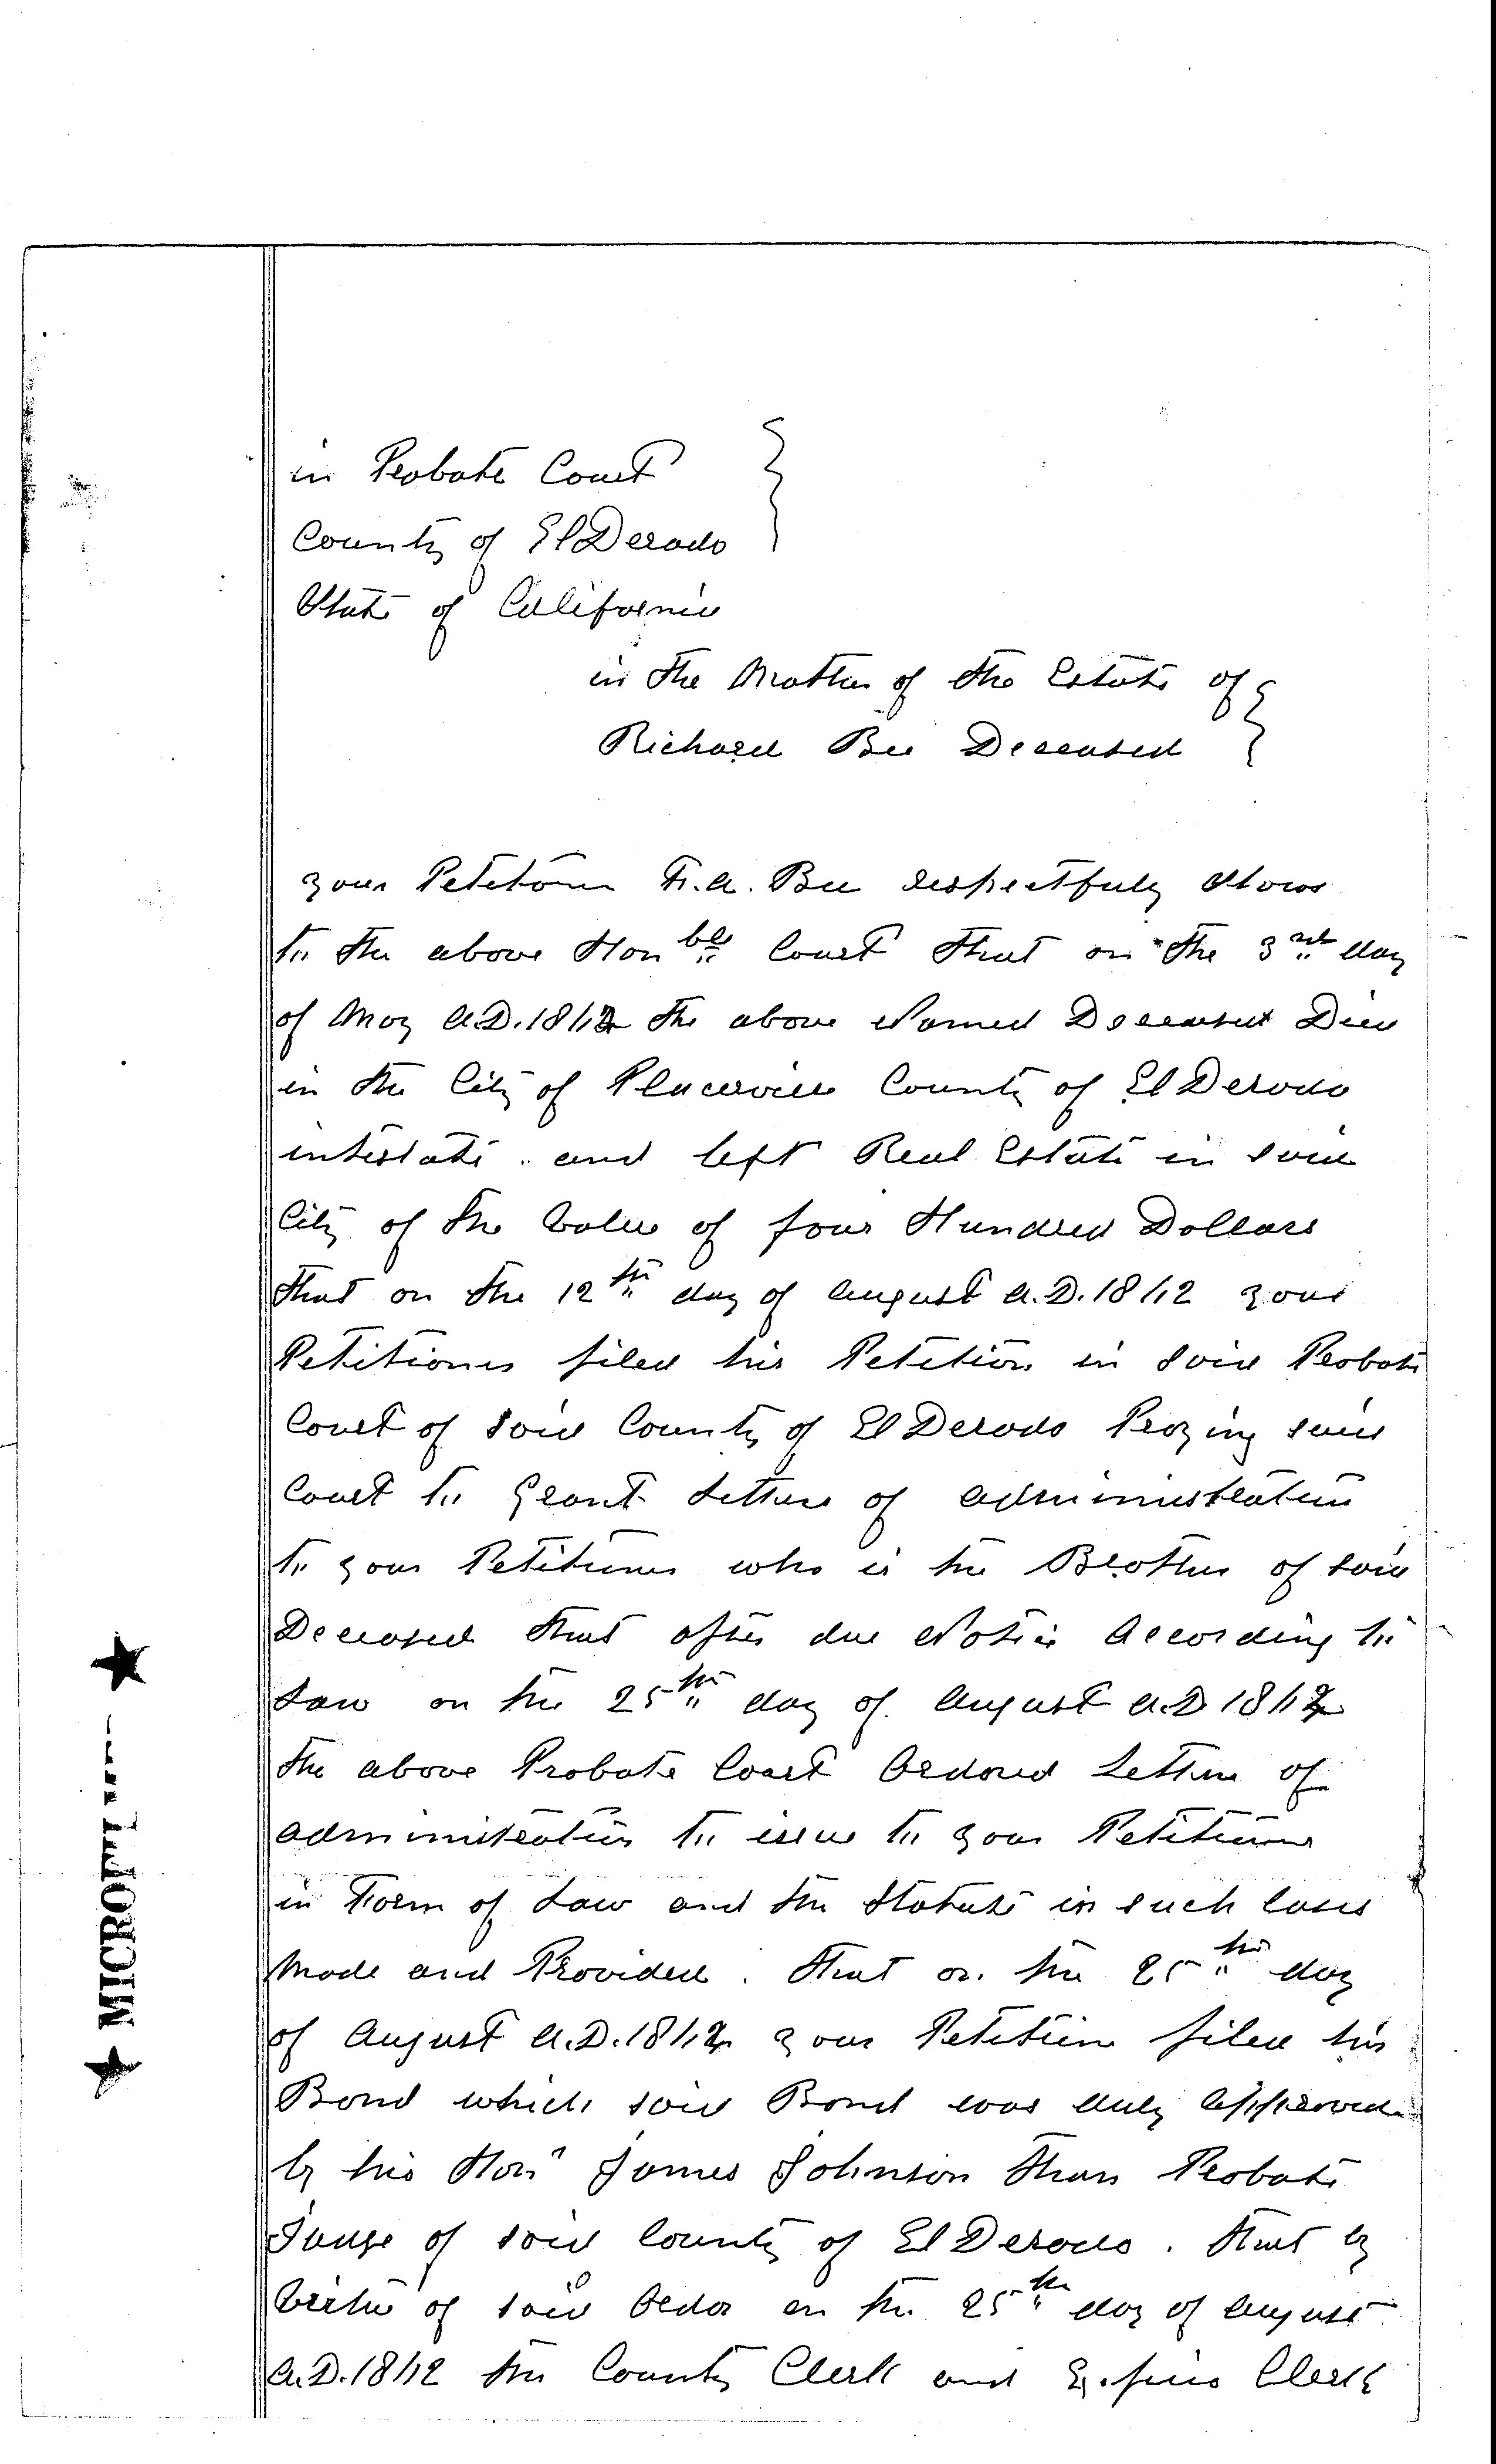 in Probate Court
County of El Derado
State of California
in the Matter of the Estate of
Richard Bee Deceased
your Petetioner F. A. Bee respectfuly Shows
to the above Honble Court that on the 3rd day
of May A.D. the above Named Deceased Died
in the City of Placerville County of El Derado
intestate. and left Real Estate in said
City of the Value of four Hundred Dollars
that on the 12th day of August A.D. your
Petitioner filed his Petetion in Said Probate
Court of Said County of El Derado Praying said
Court to Grant Letters of administration
to your Petitioner who is the Brother of said
Deceased that after due Notice According to
Law on the 25th day of August A.D
the above Probate Court Ordered Letters of
administration to issue to your Petitioner
in Form of Law and the Statute in such Cases
Made and Provided. That on the 25th day
of August A.D. your Petetioner filed his
Bond which said Bond was duly Approved
by his Hon James Johnson than Probate
Judge of said County of El Derado. that by
Virtue of said Order on the 25th day of August
A.D. the County Clerk and Clerk
★ MICROFI ★